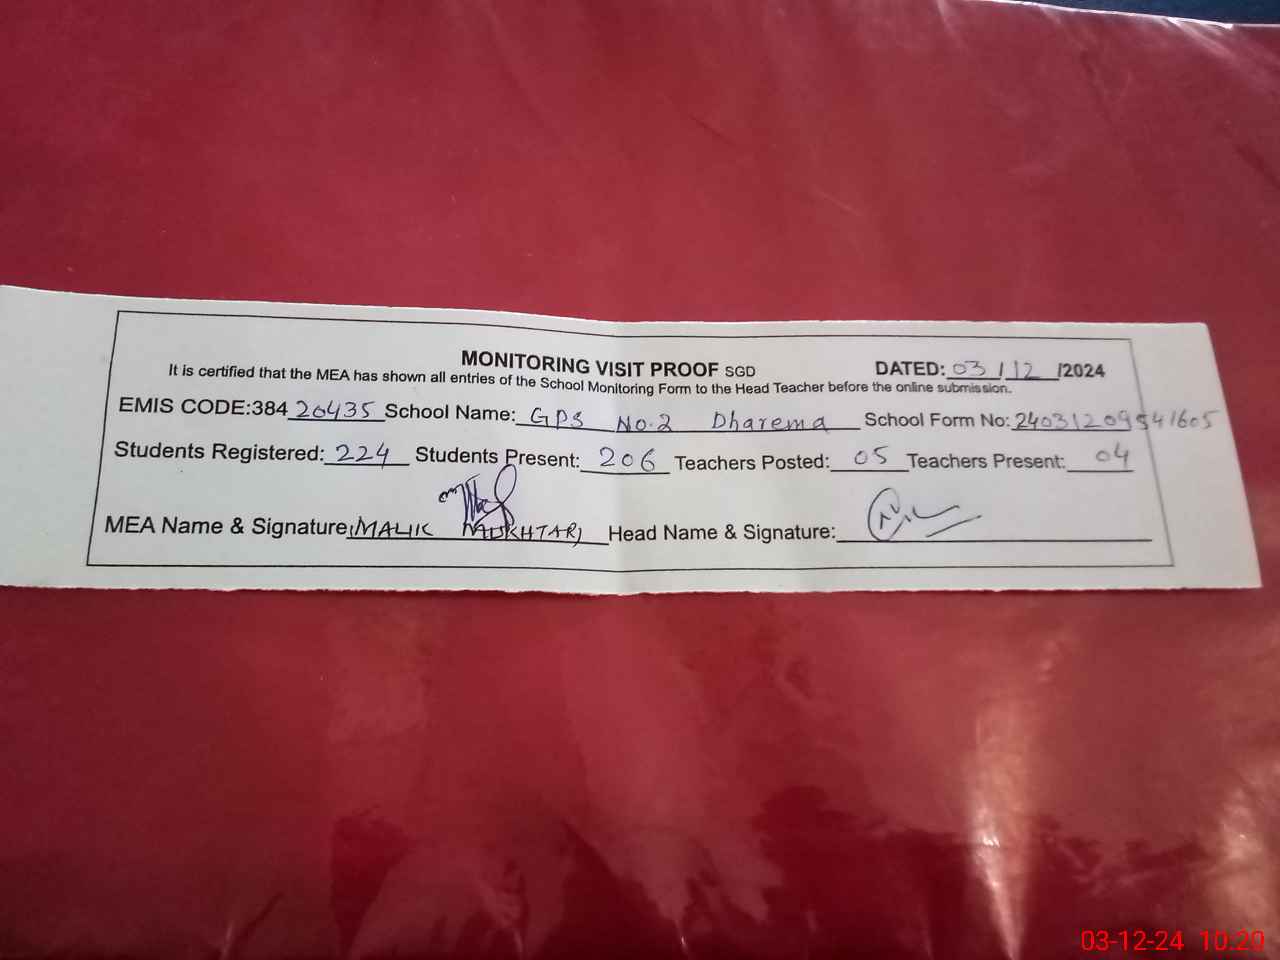 MONITORING VISIT PROOF SGD DATED: 03/12/2024
It is certified that the MEA has shown all entries of the School Monitoring Form to the Head Teacher before the online submission.
EMIS CODE:384 20435 School Name: GPS No.2 Dharema School Form No: 24031209541605
Students Registered: 224 Students Present: 206 Teachers Posted: 05 Teachers Present: 04
MEA Name & Signature: (MALIK MUKHTAR) Head Name & Signature:
03-12-24 10:20